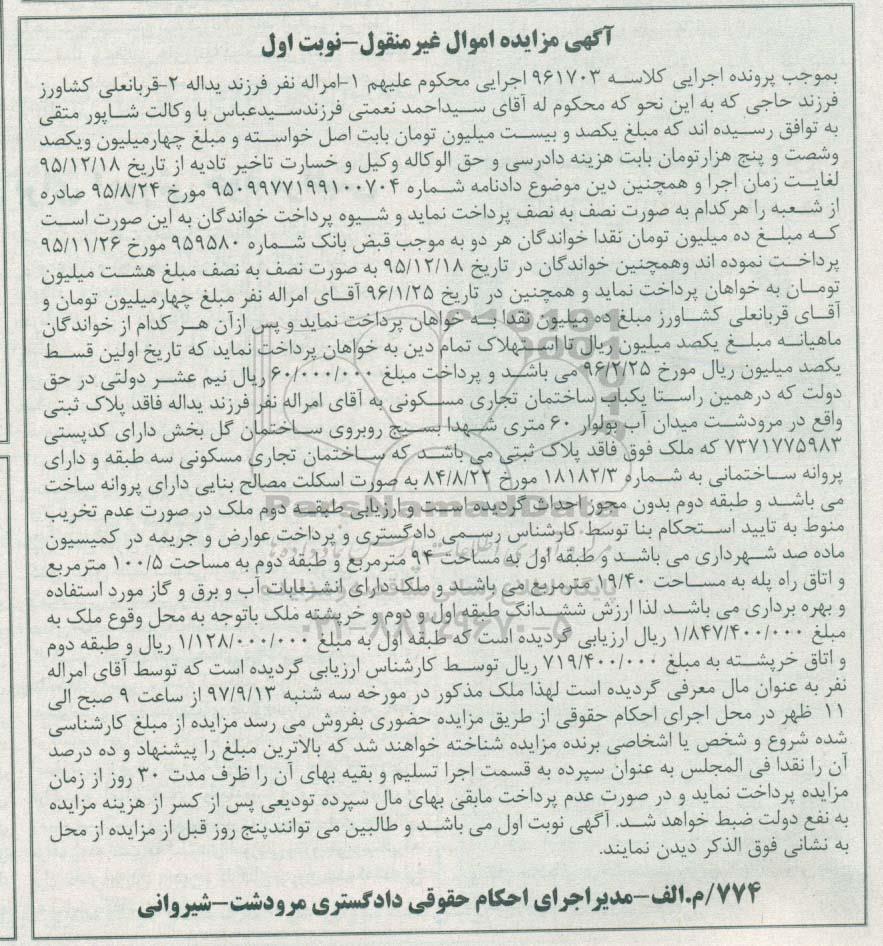 آگهی مزایده اموال غیرمنقول-نوبت اول
بموجب پرونده اجرایی کلاسه ۹۶۱۷۰۳ اجرایی محکوم علیهم ۱-امراله نفر فرزند یداله ۲-قربانعلی کشاورز
فرزند حاجی که به این نحو که محکوم له آقای سیداحمد نعمتی فرزندسیدعباس با وکالت شاپور متقی
به توافق رسیده اند که مبلغ یکصد و بیست میلیون تومان بابت اصل خواسته و مبلغ چهارمیلیون ویکصد
وشصت و پنج هزارتومان بابت هزینه دادرسی و حق الوکاله وکیل و خسارت تاخیر تادیه از تاریخ ۹۵/۱۲/۱۸
لغایت زمان اجرا و همچنین دین موضوع دادنامه شماره ۹۵۰۹۹۷۷۱۹۹۱۰۰۷۰۴ مورخ ۹۵/۸/۲۴ صادره
از شعبه را هرکدام به صورت نصف به نصف پرداخت نماید و شیوه پرداخت خواندگان به این صورت است
که مبلغ ده میلیون تومان نقدا خواندگان هر دو به موجب قبض بانک شماره ۹۵۹۵۸۰ مورخ ۹۵/۱۱/۲۶
پرداخت نموده اند وهمچنین خواندگان در تاریخ ۹۵/۱۲/۱۸ به صورت نصف به نصف مبلغ هشت میلیون
تومان به خواهان پرداخت نماید و همچنین در تاریخ ۹۶/۱/۲۵ آقای امراله نفر مبلغ چهارمیلیون تومان و
آقای قربانعلی کشاورز مبلغ ده میلیون نقدا به خواهان پرداخت نماید و پس ازآن هر کدام از خواندگان
ماهیانه مبلغ یکصد میلیون ریال تا استهلاک تمام دین به خواهان پرداخت نماید که تاریخ اولین قسط
یکصد میلیون ریال مورخ ۹۶/۲/۲۵ می باشد و پرداخت مبلغ ۶۰/۰۰۰/۰۰۰ ریال نیم عشر دولتی در حق
دولت که درهمین راستا یکباب ساختمان تجاری مسکونی به آقای امراله نفر فرزند یداله فاقد پلاک ثبتی
واقع در مرودشت میدان آب بولوار ۶۰ متری شهدا بسیج روبروی ساختمان گل بخش دارای کدپستی
۷۳۷۱۷۷۵۹۸۳ که ملک فوق فاقد پلاک ثبتی می باشد که ساختمان تجاری مسکونی سه طبقه و دارای
پروانه ساختمانی به شماره ۱۸۱۸۲/۳ مورخ ۸۴/۸/۲۲ به صورت اسکلت مصالح بنایی دارای پروانه ساخت
می باشد و طبقه دوم بدون مجوز احداث گردیده است و ارزیابی طبقه دوم ملک در صورت عدم تخریب
منوط به تایید استحکام بنا توسط کارشناس رسمی دادگستری و پرداخت عوارض و جریمه در کمیسیون
ماده صد شهرداری می باشد و طبقه اول به مساحت ۹۴ مترمربع و طبقه دوم به مساحت ۱۰۰/۵ مترمربع
و اتاق راه پله به مساحت ۱۹/۴۰ مترمربع می باشد و ملک دارای انشعابات آب و برق و گاز مورد استفاده
و بهره برداری می باشد لذا ارزش ششدانگ طبقه اول و دوم و خرپشته ملک باتوجه به محل وقوع ملک به
مبلغ ۱/۸۴۷/۴۰۰/۰۰۰ ریال ارزیابی گردیده است که طبقه اول به مبلغ ۱/۱۲۸/۰۰۰/۰۰۰ ریال و طبقه دوم
و اتاق خرپشته به مبلغ ۷۱۹/۴۰۰/۰۰۰ ریال توسط کارشناس ارزیابی گردیده است که توسط آقای امراله
نفر به عنوان مال معرفی گردیده است لهذا ملک مذکور در مورخه سه شنبه ۹۷/۹/۱۳ از ساعت ۹ صبح الی
۱۱ ظهر در محل اجرای احکام حقوقی از طریق مزایده حضوری بفروش می رسد مزایده از مبلغ کارشناسی
شده شروع و شخص یا اشخاصی برنده مزایده شناخته خواهند شد که بالاترین مبلغ را پیشنهاد و ده درصد
آن را نقدا فی المجلس به عنوان سپرده به قسمت اجرا تسلیم و بقیه بهای آن را ظرف مدت ۳۰ روز از زمان
مزایده پرداخت نماید و در صورت عدم پرداخت مابقی بهای مال سپرده تودیعی پس از کسر از هزینه مزایده
به نفع دولت ضبط خواهد شد. آگهی نوبت اول می باشد و طالبین می توانندپنج روز قبل از مزایده از محل
به نشانی فوق الذکر دیدن نمایند.
۷۷۴/م.الف-مدیراجرای احکام حقوقی دادگستری مرودشت-شیروانی
ParsNamadData
۰۲۱-۸۸۳۴۹۶۷۰-۵